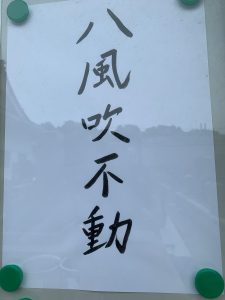 八風吹不動